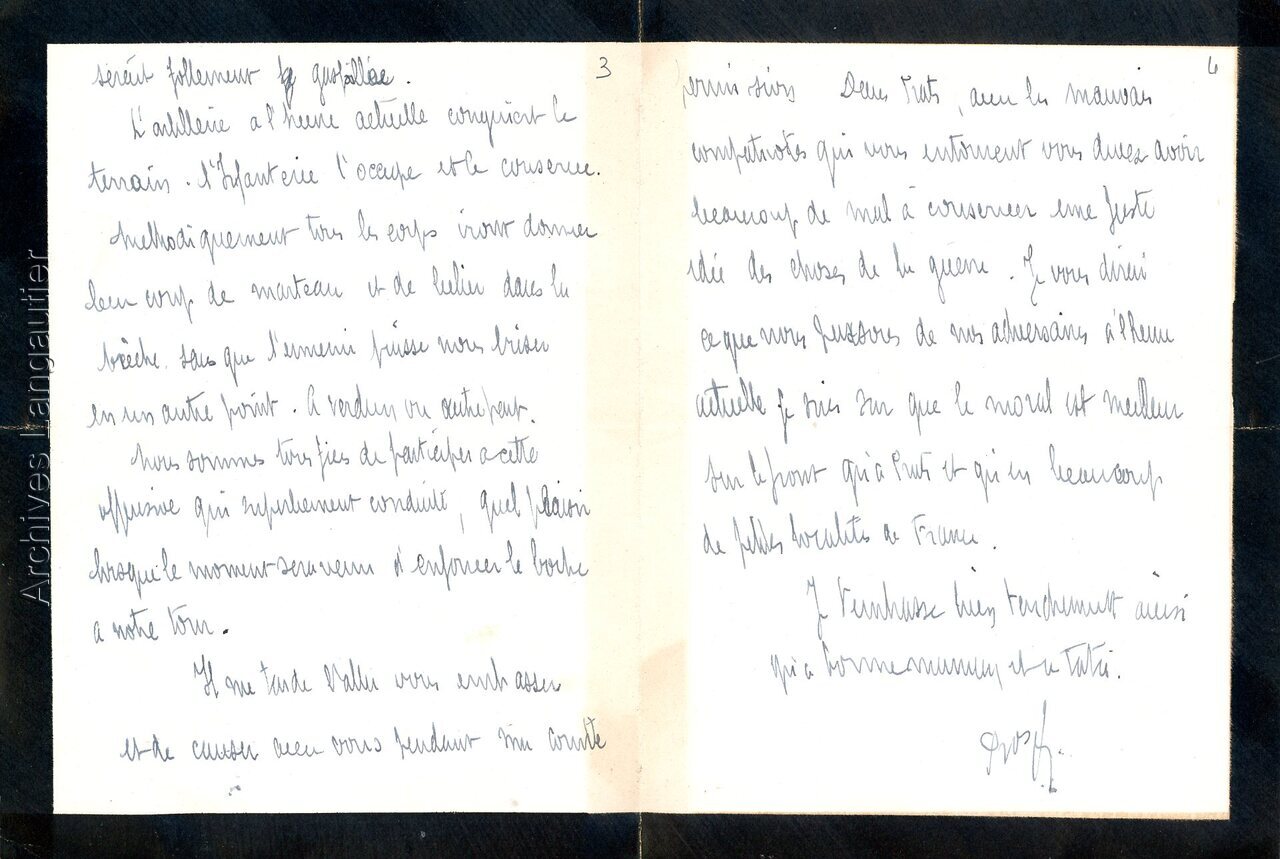 3
serait follement gaspillée.
L'artillerie a l'heure actuelle conquiert le
terrain. l'Infanterie l'occupe et le conserve.
Methodiquement tous les corps iront donner
leur coup de marteau et de belier dans la
brèche. sans que l'ennemi puisse nous briser
en un autre point. A Verdun ou autre part.
Nous sommes tous fiers de participer a cette
offensive qui superbement conduite, quel plaisir
lorsque le moment sera venu d'enfoncer le boche
a notre tour.
Il me tarde d'aller vous embrasser
et de causer avec vous pendant ma courte
permission Dans Prats, avec les mauvais
compatriotes qui vous entourent vous devez avoir
beaucoup de mal à conserver une juste
idée des choses de la guerre. Je vous dirai
ce que nous pensons de nos adversaires a l'heure
actuelle je suis sur que le moral est meilleur
sur le front qu'à Prats et qu'en beaucoup
de petites localités de France.
Je t'embrasse bien tendrement ainsi
qu'a bonne maman et a tata.
Archives Langautier